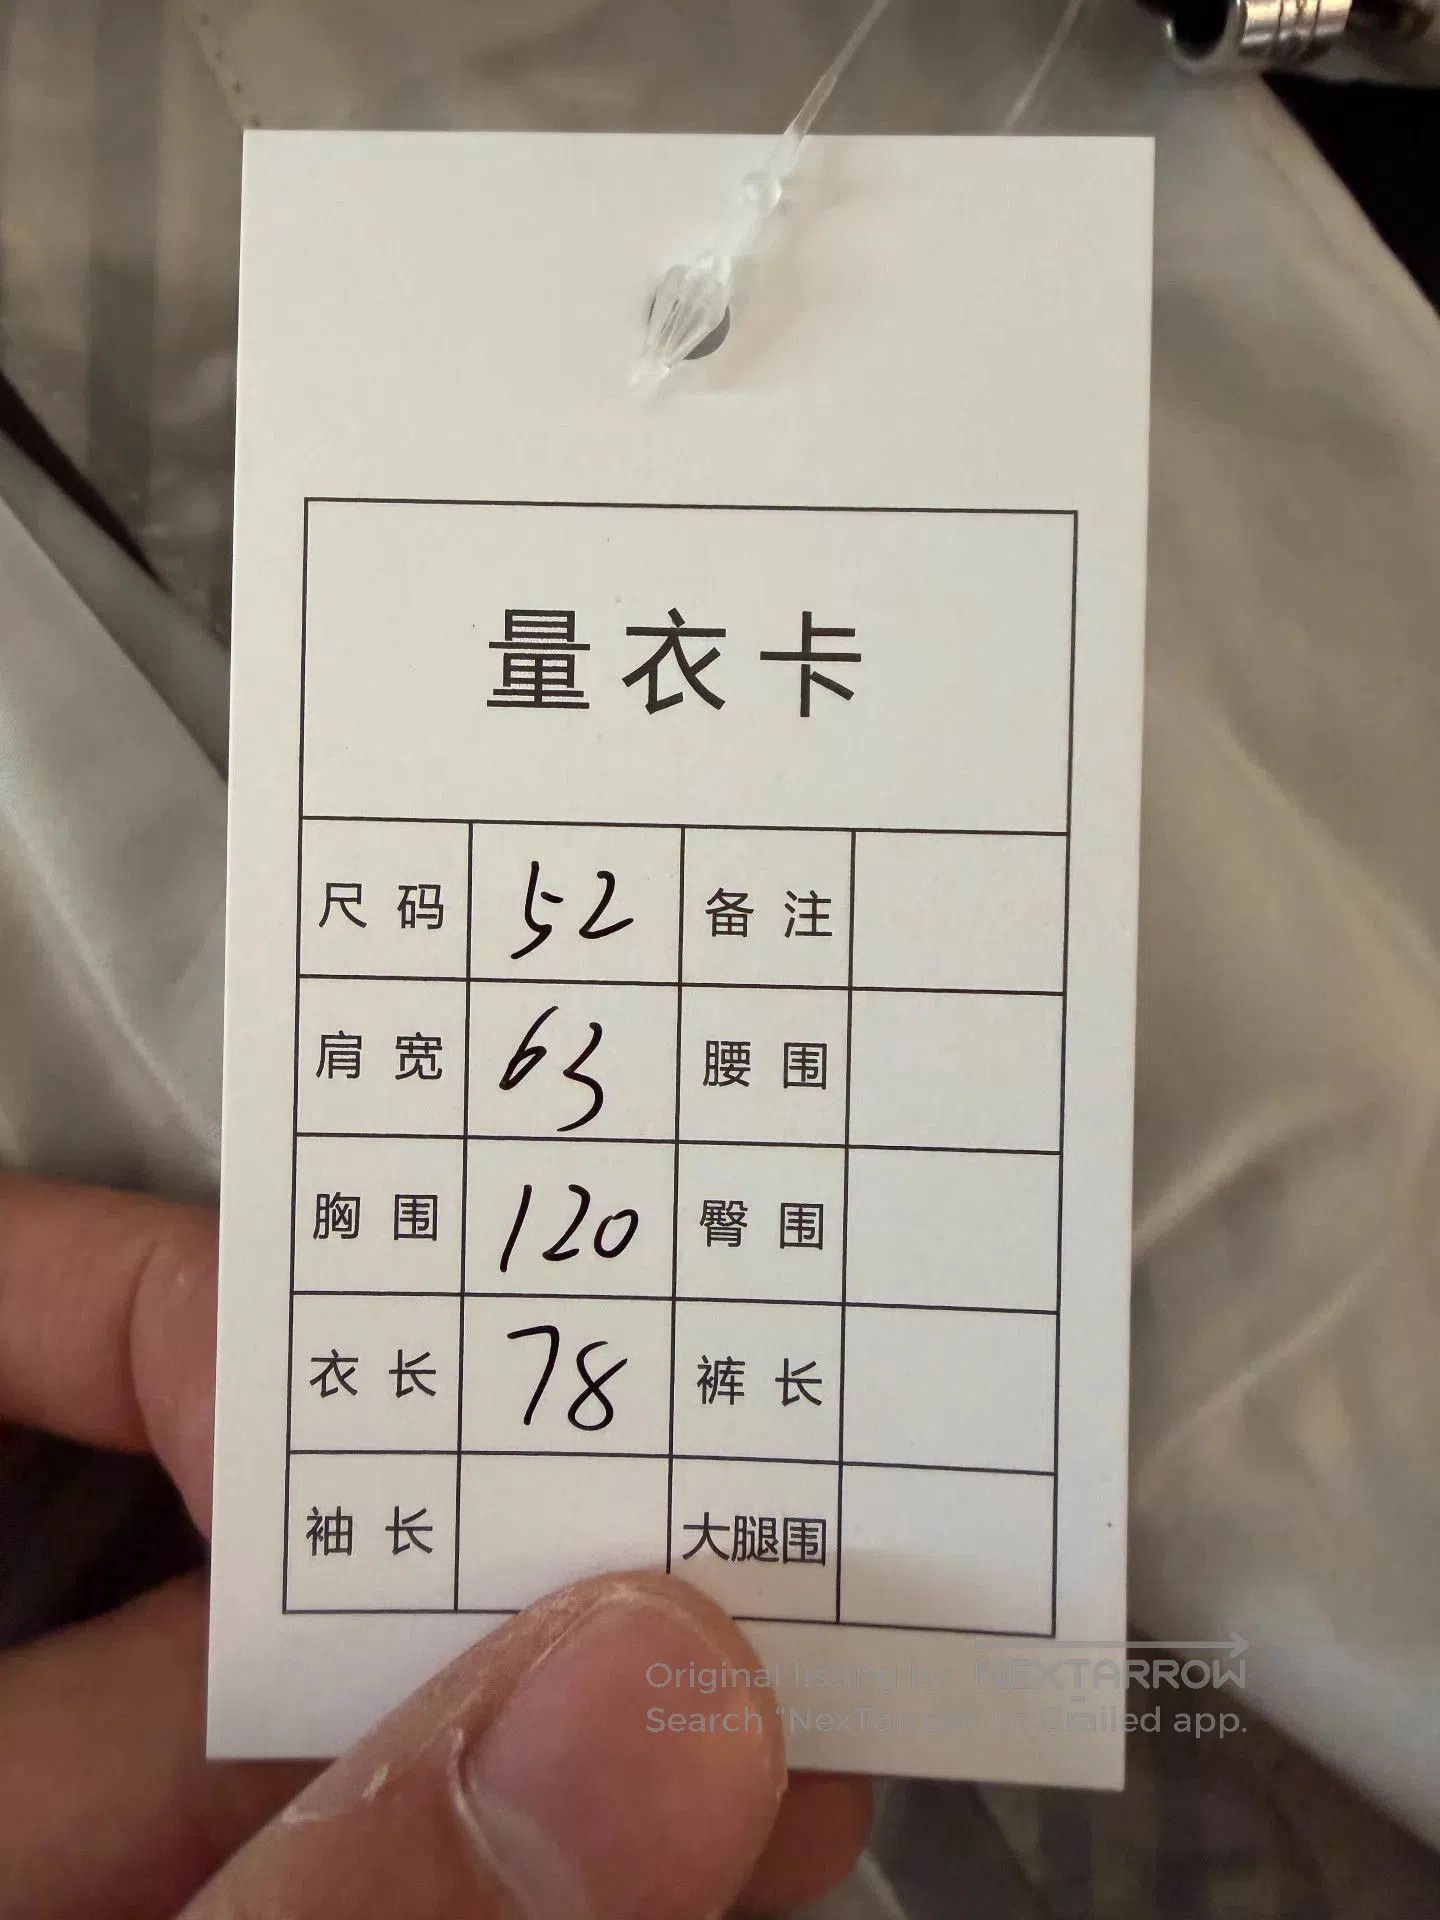 量衣卡
尺码 52 备注
肩宽 63 腰围
胸围 120 臀围
衣长 78 裤长
袖长 大腿围
Original listing by NEXTARROW
Search "NexTarrow" in Grailed app.